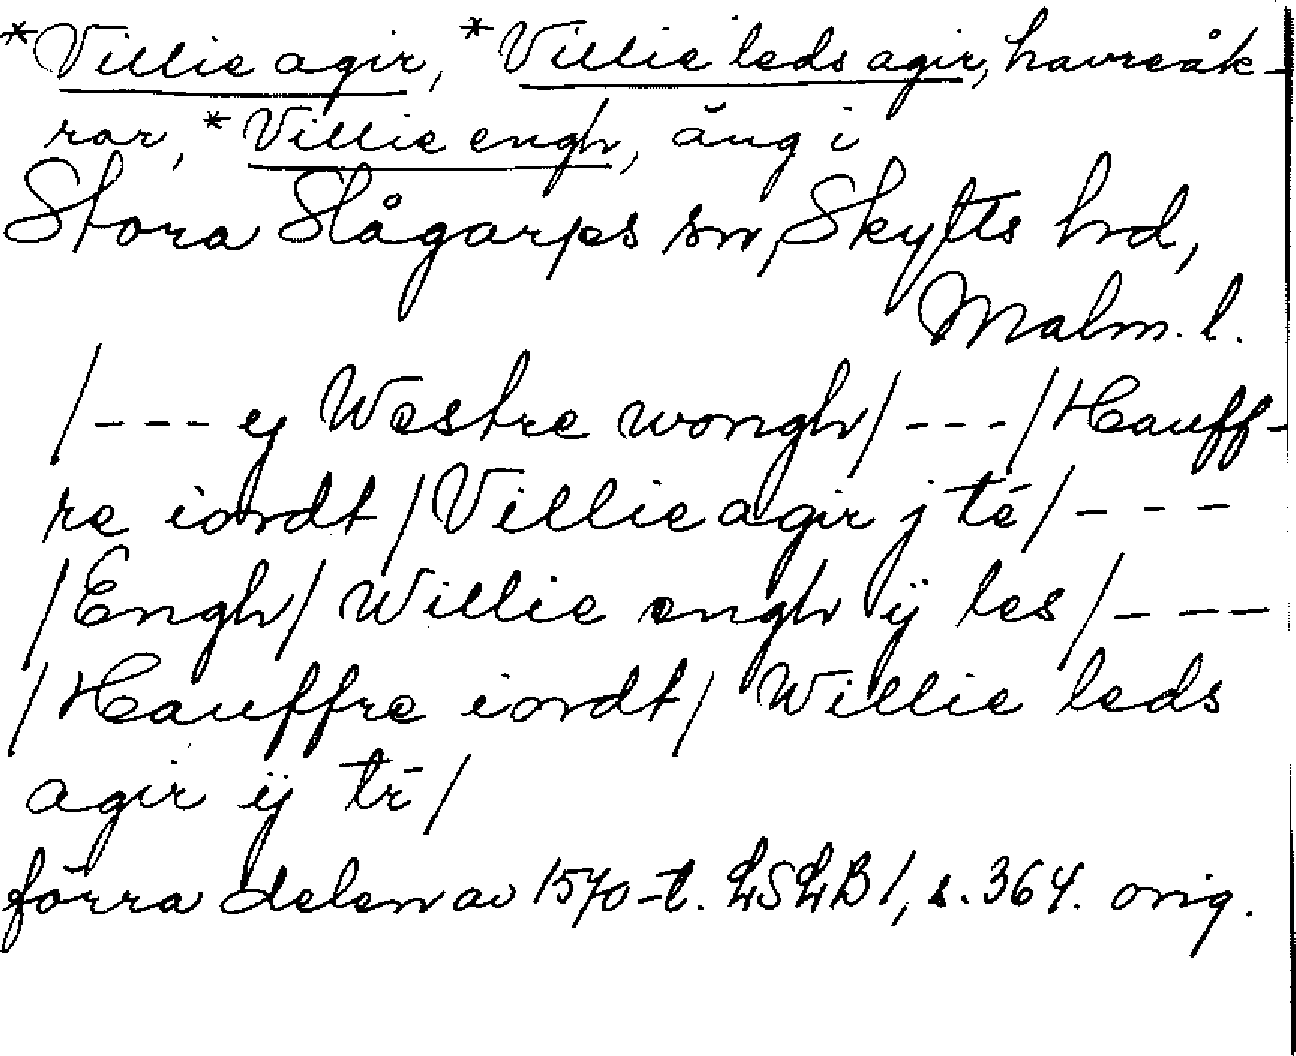 *Villie agir, *Villie leds agir, havreåk-
rar, *Villie engh, äng i
Stora Slågarps sn, Skytts hd,
Malm. l.
/--- ej Westre wongh/---/Hauff-
re iordt/Villie agir j té/---
/Engh/Willie engh ij les/---
/Hauffre iordt/Willie leds
agir ij tr̄/
förra delen av 1570-t. LSLB1, s. 364. orig.